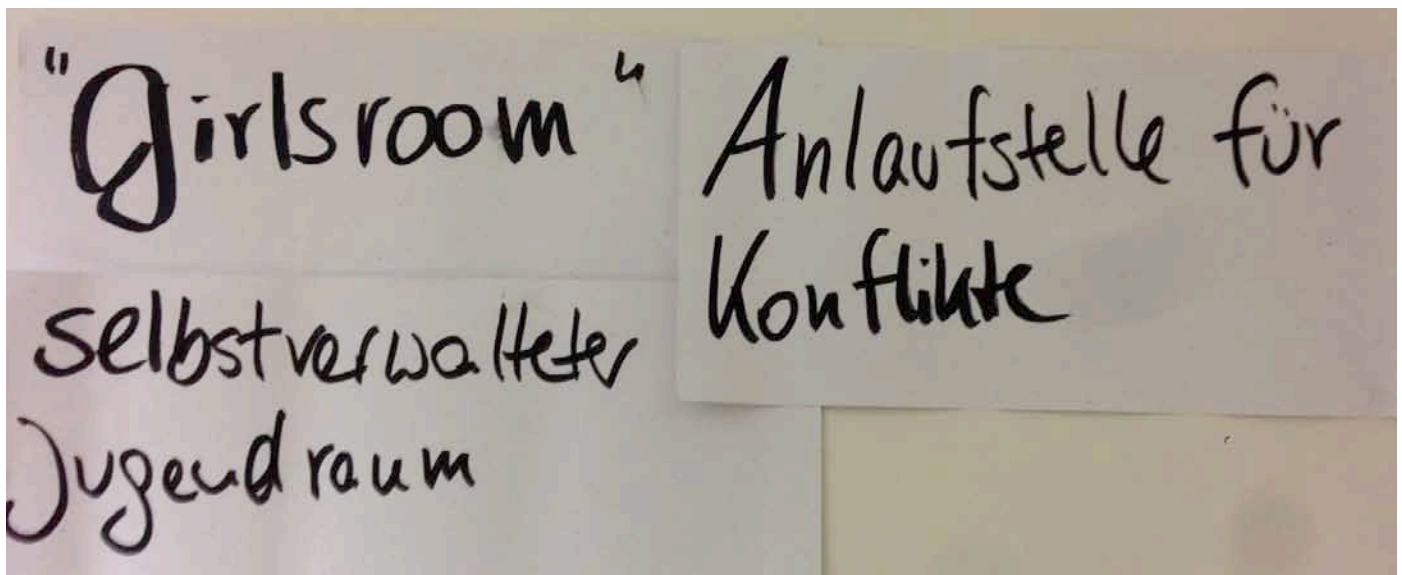 "Girlsroom"
selbstverwalteter
Jugendraum
Anlaufstelle für
Konflikte